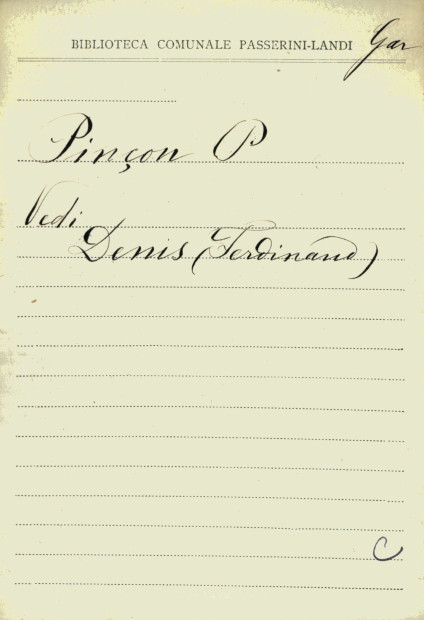 BIBLIOTECA COMUNALE PASSERINI-LANDI Gar
Pinçon P
Vedi
Denis (Ferdinand)
C